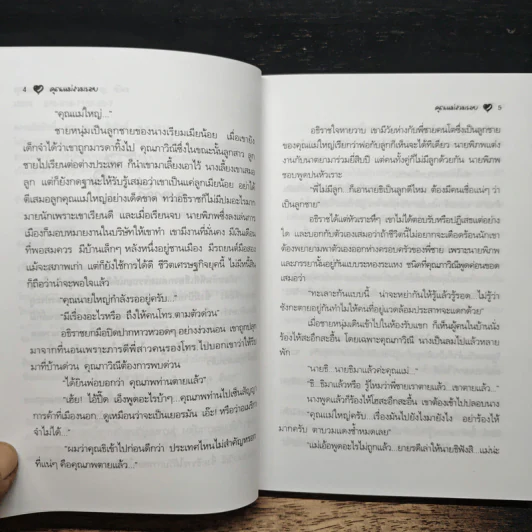 4
"คุณแม่ใหญ่..."
ชายหนุ่มเป็นลูกชายของนางเรียมเมียน้อย เมื่อเขายัง
เด็กจำได้ว่าเขาถูกมารดาทิ้งไป คุณภาวิณีซึ่งในขณะนั้นลูกสาว ลูก
ชายไปเรียนต่อต่างประเทศ ก็นำเขามาเลี้ยงเอาไว้ นางเลี้ยงเขาเสมอ
ลูก แต่ก็ยังกดฐานะให้รับรู้เสมอว่าเขาเป็นแค่ลูกเมียน้อย อย่าได้
ตีเสมอลูกคุณแม่ใหญ่อย่างเด็ดขาด ทว่าอธิราชก็ไม่มีปมอะไรมาก
มายนักเพราะเขาเรียนดี และเมื่อเรียนจบ นายพิภพซึ่งลงเล่นการ
เมืองก็มอบหมายงานในบริษัทให้เขาทำ เขามีงานที่มั่นคง มีเงินเดือน
ที่พอสมควร มีบ้านเล็กๆ หลังหนึ่งอยู่ชานเมือง มีรถยนต์มือสอง
แม้จะสภาพเก่า แต่ก็ยังใช้การได้ดี ชีวิตเศรษฐกิจยุคนี้ ไม่เป็นหนี้สิน
ก็ถือว่าน่าจะพอใจแล้ว
"คุณนายใหญ่กำลังรออยู่ครับ..."
"มีเรื่องอะไรหรือ ถึงให้คนโทร ตามตัวด่วน"
อธิราชยกมือปิดปากหาวหวอดๆ อย่างง่วงนอน เขาถูกปลุก
มาจากที่นอนเพราะภารดีพี่สาวคนรองโทร.ไปบอกเขาว่าให้รีบ
มาที่บ้านด่วน คุณภาวิณีต้องการพบด่วน
"ได้ยินพ่อบอกว่า คุณภพท่านตายแล้ว"
"เฮ้ย! ไอ้ปื๊ด เอ็งพูดอะไรบ้าๆ...คุณภาพท่านไปเซ็นสัญญา
การค้าที่เมืองนอก...ดูเหมือนว่าจะเป็นเยอรมัน เอ๊ะ! หรือว่าอเมริกา
จำไม่ได้..."
"ผมว่าคุณชิเข้าไปก่อนดีกว่า ประเทศไหนไม่สำคัญหรอก
ที่แน่ๆ คือคุณภพตายแล้ว..."
5
อธิราชใจหายวาบ เขามีวัยห่างกับพี่ชายคนโตซึ่งเป็นลูกชาย
ของคุณแม่ใหญ่เรียกว่าพ่อกับลูกก็เห็นจะได้ทีเดียว นายพิภพแต่ง
งานกับนาตยามาร่วมยี่สิบปี แต่คนทั้งคู่ก็ไม่มีลูกด้วยกัน นายพิภพ
ชอบพูดปนหัวเราะ
"พี่ไม่มีลูก. ก็เอานายชิเป็นลูกดีไหม ต้องมีคนเชื่อแน่ๆ ว่า
เป็นลูกชาย"
อธิราชได้แต่หัวเราะหึๆ เขาไม่ได้ตอบรับหรือปฏิเสธแต่อย่าง
ใด และบอกกับตัวเองเสมอว่าถ้าชีวิตนี้ไม่อยากจะเดือดร้อนนักเขา
ต้องพยายามพาตัวเองออกห่างครอบครัวของพี่ชาย เพราะนายพิภพ
และภรรยานั้นอยู่กันแบบระหองระแหง ชนิดที่คุณภาวิณีพูดค่อนขอด
เสมอว่า
"ทะเลาะกันแบบนี้ น่าจะหย่ากันให้รู้แล้วรู้รอด...ไม่รู้ว่า
รังกะตายอยู่กันทำไมให้คนที่อยู่แวดล้อมประสาทจะแดกตายด้วย"
เมื่อชายหนุ่มเดินเข้าไปในห้องรับแขก ก็เห็นผู้คนในบ้านนั่ง
ร้องไห้สะอึกสะอื้น โดยเฉพาะคุณภาวิณี นางเป็นลมไปแล้วหลาย
พัก
"นายชิ...นายชิมาแล้วค่ะคุณแม่..."
"ชิ...ชิมาแล้วหรือ รู้ไหมว่าพี่ชายเราตายแล้ว...เขาตายแล้ว..."
นางพูดแล้วก็ร้องไห้โฮสะอึกสะอื้น เขาต้องเข้าไปปลอบนาง
"คุณแม่ใหญ่ครับ... เรื่องมันไปยังไงมายังไง อย่าร้องไห้
มากครับ ตาบวมแดงช้ำหมดเลย"
"แม่เอ้อพูดอะไรไม่ถูกแล้ว...ยายรดีเล่าให้นายชิฟังสิ...แม่น่ะ